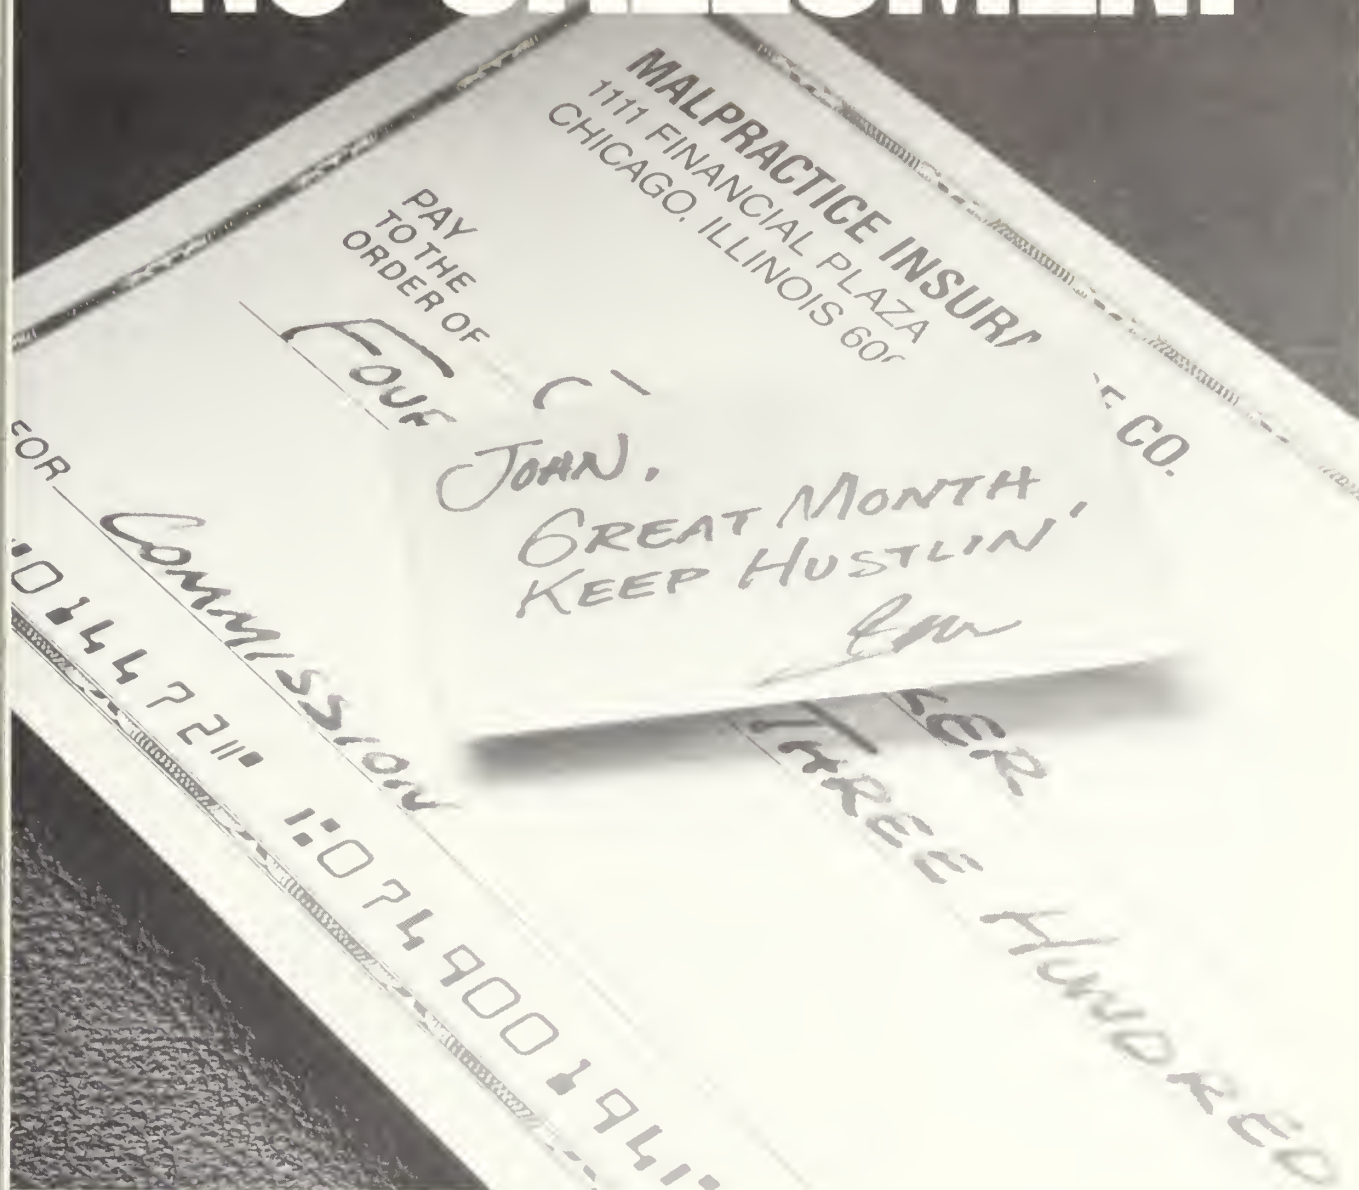 NO SALESMEN
MALPRACTICE INSURA
CE CO.
1111 FINANCIAL PLAZA
CHICAGO, ILLINOIS 606
PAY
TO THE
ORDER OF
KER
FOUR
THREE HUNDRED
JOHN,
GREAT MONTH,
KEEP HUSTLIN'
FOR COMMISSION
⑈014472⑈ ⑆074900194⑆